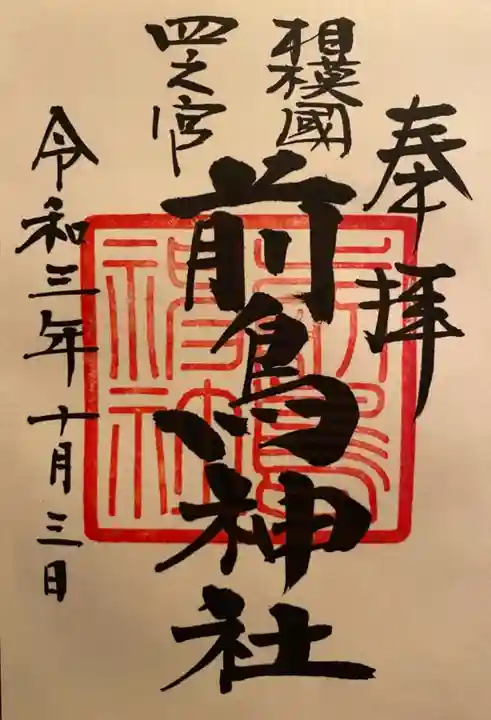 奉拝
相模國
四之宮
前鳥神社
令和三年十月三日